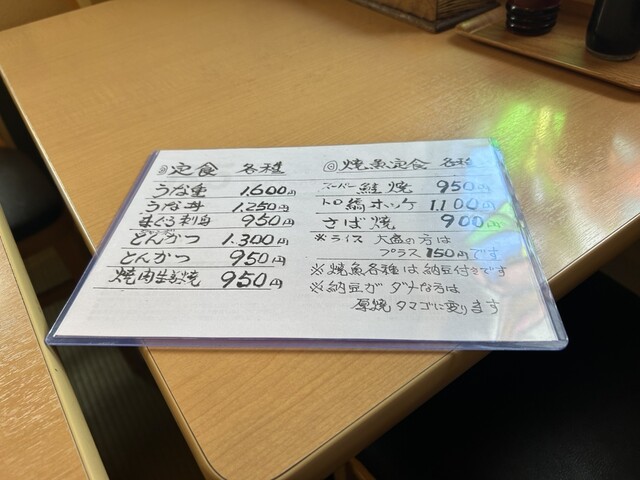 定食 各種
うな重 1.600円
うな丼 1.250円
まぐろ刺身 950円
とんかつ 1.300円
とんかつ 950円
焼肉生姜焼 950円
◎焼魚定食 各種
スーパー 鮭焼 950円
トロ縞ホッケ 1.100円
さば焼 900円
※ライス 大盛の方は
プラス150円です
※焼魚各種は納豆付きです
※納豆がダメな方は
厚焼タマゴに変ります